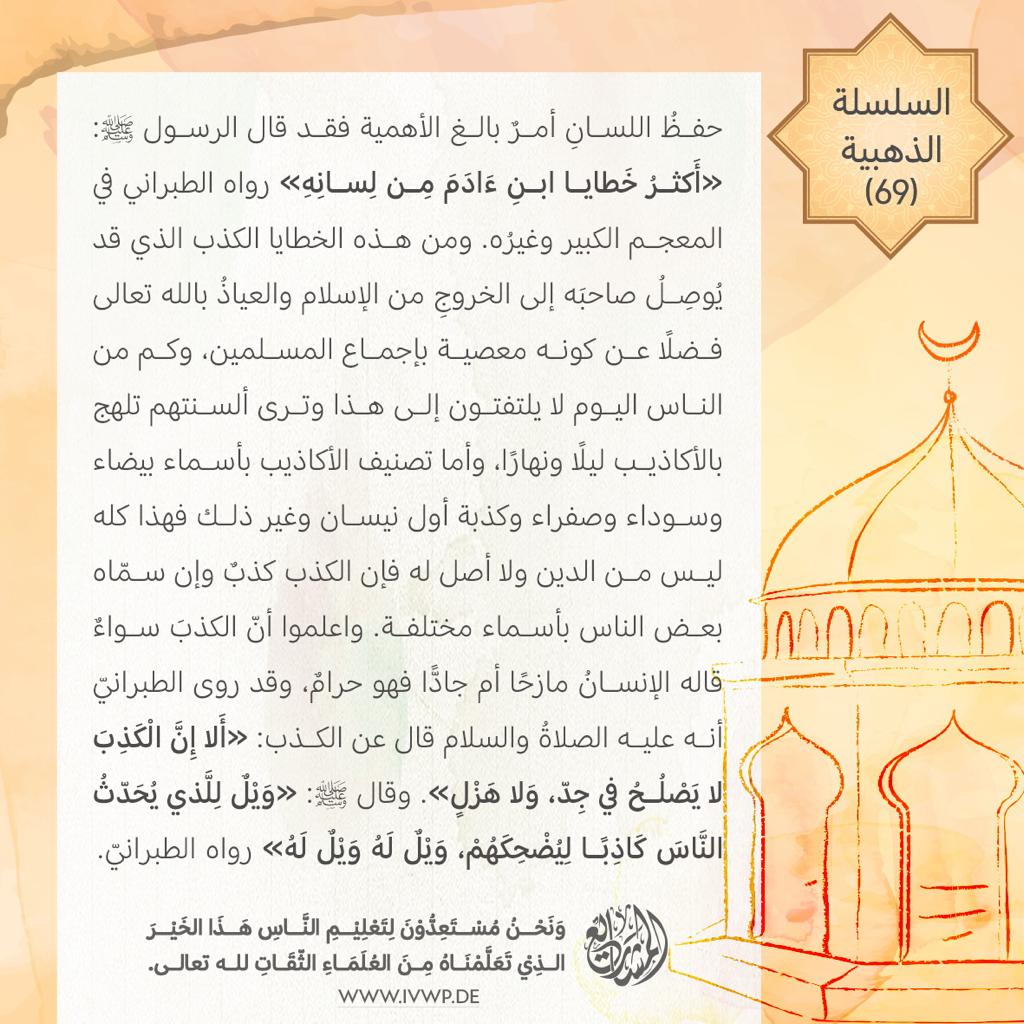 السلسلة
الذهبية
(69)
حفظُ اللسانِ أمرٌ بالغ الأهمية فقد قال الرسول ﷺ:
«أَكثرُ خَطايا ابنِ ءَادَمَ مِن لِسانِهِ» رواه الطبراني في
المعجم الكبير وغيرُه. ومن هذه الخطايا الكذب الذي قد
يُوصِلُ صاحبَه إلى الخروجِ من الإسلام والعياذُ بالله تعالى
فضلًا عن كونه معصية بإجماع المسلمين، وكم من
الناس اليوم لا يلتفتون إلى هذا وترى ألسنتهم تلهج
بالأكاذيب ليلًا ونهارًا، وأما تصنيف الأكاذيب بأسماء بيضاء
وسوداء وصفراء وكذبة أول نيسان وغير ذلك فهذا كله
ليس من الدين ولا أصل له فإن الكذب كذبٌ وإن سمّاه
بعض الناس بأسماء مختلفة. واعلموا أنّ الكذبَ سواءٌ
قاله الإنسانُ مازحًا أم جادًّا فهو حرامٌ، وقد روى الطبرانيّ
أنه عليه الصلاةُ والسلام قال عن الكذب: «أَلا إِنَّ الْكَذِبَ
لا يَصْلُحُ في جِدّ، وَلا هَزْلٍ». وقال ﷺ: «وَيْلٌ لِلَّذي يُحَدّثُ
النَّاسَ كَاذِبًا لِيُضْحِكَهُمْ، وَيْلٌ لَهُ وَيْلٌ لَهُ» رواه الطبرانيّ.
وَنَحْنُ مُسْتَعِدُّوْنَ لِتَعْلِيْمِ النَّاسِ هَذَا الخَيْرَ
الذِيْ تَعَلَّمْنَاهُ مِنَ العُلَمَاءِ الثِّقَاتِ لله تعالى.
WWW.IVWP.DE